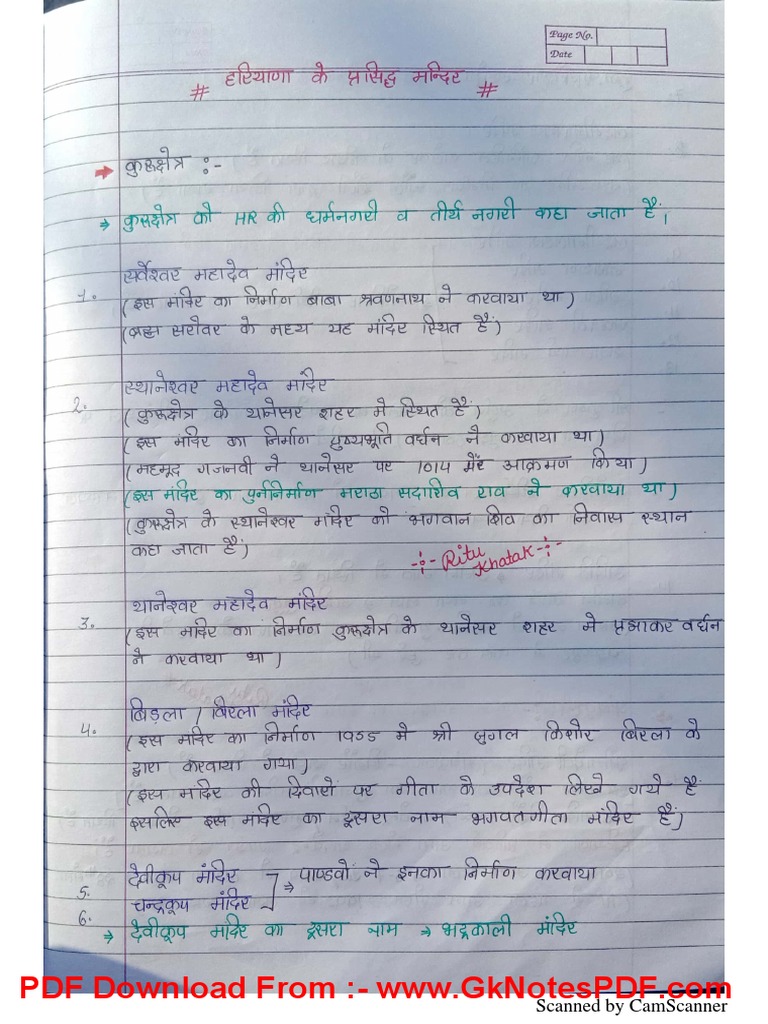 Page No.
Date
# हरियाणा के प्रसिद्ध मन्दिर #
→ कुरूक्षेत्र :-
⇒ कुरूक्षेत्र को HR की धर्मनगरी व तीर्थ नगरी कहा जाता है।
1. सर्वेश्वर महादेव मंदिर
(इस मंदिर का निर्माण बाबा श्रवणनाथ ने करवाया था)
(ब्रह्म सरोवर के मध्य यह मंदिर स्थित है)
2. स्थानेश्वर महादेव मंदिर
(कुरूक्षेत्र के थानेसर शहर मे स्थित है)
(इस मंदिर का निर्माण पुष्यभूति वर्धन ने करवाया था)
(महमूद गजनवी ने थानेसर पर 1014 में आक्रमण किया)
(इस मंदिर का पुर्ननिर्माण मराठा सदाशिव राव ने करवाया था)
(कुरूक्षेत्र के स्थानेश्वर मंदिर को भगवान शिव का निवास स्थान
कहा जाता है)
-:- Ritu Khatak -:-
3. थानेश्वर महादेव मंदिर
(इस मंदिर का निर्माण कुरूक्षेत्र के थानेसर शहर मे प्रभाकर वर्धन
ने करवाया था)
4. बिड़ला / बिरला मंदिर
(इस मंदिर का निर्माण 1955 मे श्री जुगल किशोर बिरला के
द्वारा करवाया गया)
(इस मंदिर की दिवारों पर गीता के उपदेश लिखे गये है
इसलिए इस मंदिर का दूसरा नाम भगवतगीता मंदिर है)
5. देवीकूप मंदिर ] ⇒ पाण्डवों ने इनका निर्माण करवाया
6. चन्द्रकूप मंदिर
⇒ देवीकूप मंदिर का दूसरा नाम → भद्रकाली मंदिर
PDF Download From :- www.GkNotesPDF.com
Scanned by CamScanner